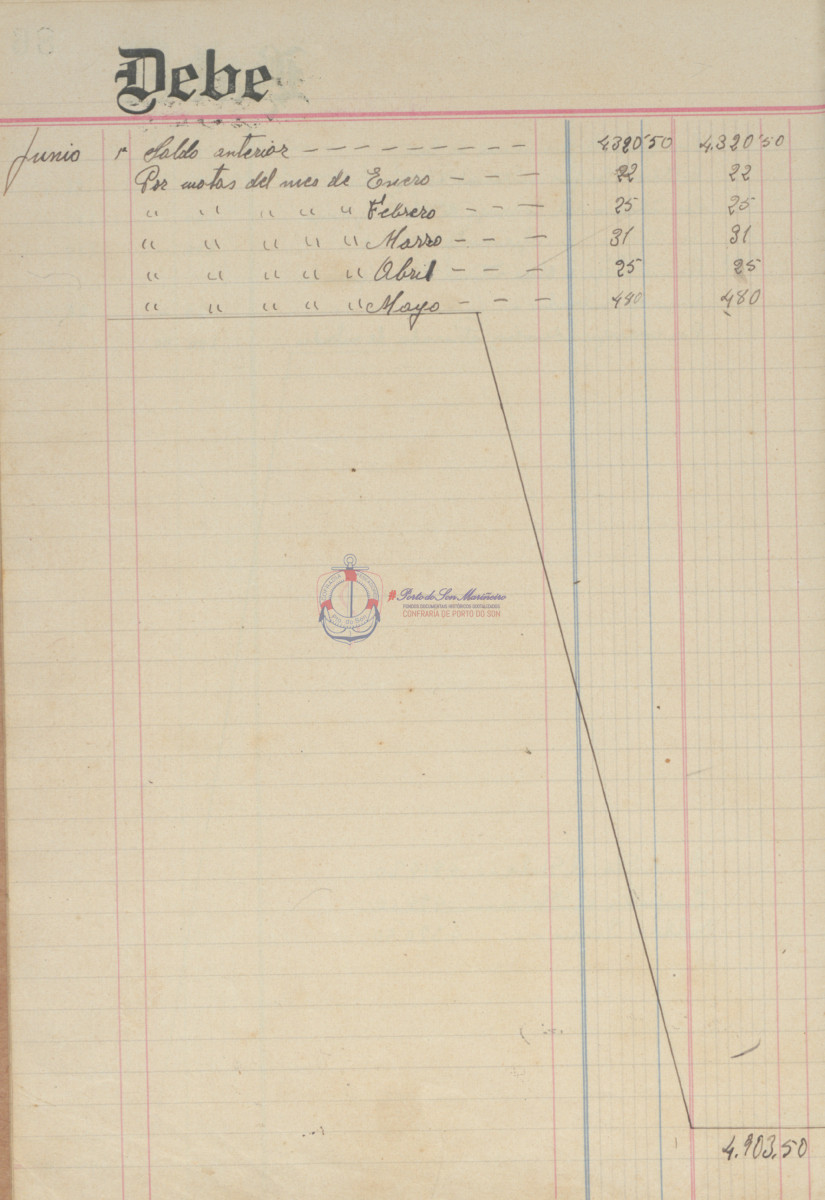 Debe
Junio 1º Saldo anterior - - - - - - - - - 4320'50 4.320'50
Por motas del mes de Enero - - - 22 22
" " " " " Febrero - - - 25 25
" " " " " Marzo - - - 31 31
" " " " " Abril - - - 25 25
" " " " " Mayo - - - 480 480
Porto do Son Mariñeiro
FONDOS DOCUMENTAIS HISTÓRICOS DIXITALIZADOS
CONFRARÍA DE PORTO DO SON
4.903.50